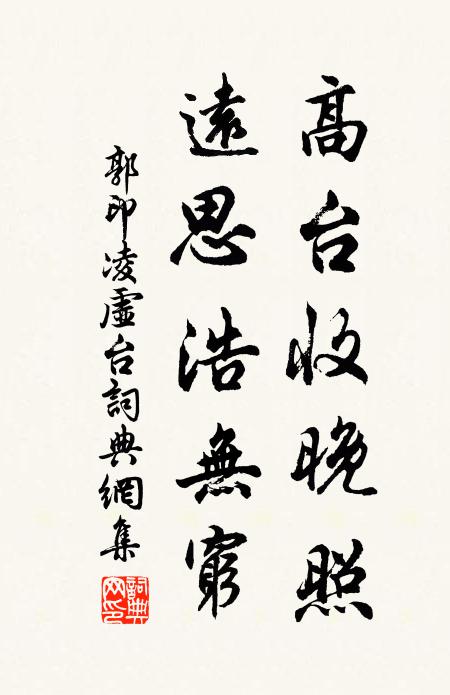 高台收晚照
遠思浩無窮
郭印凌虛台詞典網集
詞典網印